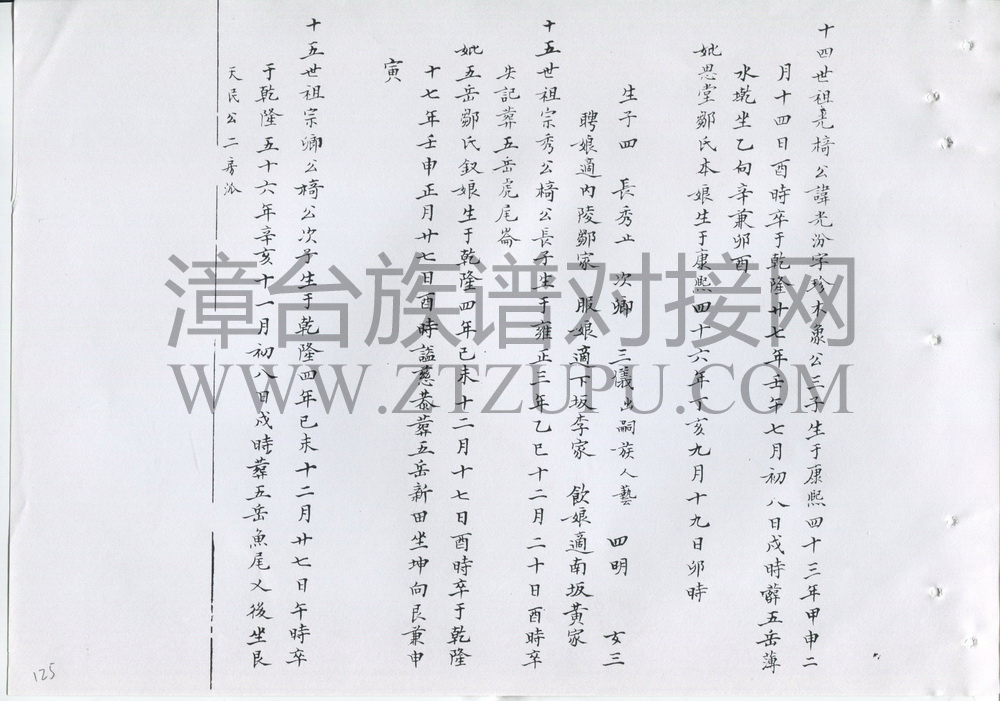 十四世祖光椅公諱光汾字珍木象公三子生于康熙四十三年甲申二
月十四日酉時卒于乾隆廿七年壬午七月初八日戌時葬五岳薄
水墘坐乙向辛兼卯酉
妣思堂鄒氏本娘生于康熙四十六年丁亥九月十九日卯時
生子四 長秀止 次卿 三儀出嗣族人藝 四明 女三
聘娘適內陵鄒家 服娘適下坂李家 飲娘適南坂黃家
十五世祖宗秀公椅公長子生于雍正三年乙巳十二月二十日酉時卒
失記葬五岳虎尾崙
妣五岳鄒氏釵娘生于乾隆四年己未十二月十七日酉時卒于乾隆
十七年壬申正月廿七日酉時謚慈恭葬五岳新田坐坤向艮兼申
寅
十五世祖宗卿公椅公次子生于乾隆四年己未十二月廿七日午時卒
于乾隆五十六年辛亥十一月初八日戌時葬五岳魚尾乂後坐艮
天民公二房派
125
漳台族谱对接网
WWW.ZTZUPU.COM